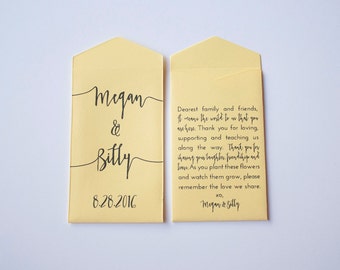 Megan
&
Billy
8.28.2016
Dearest family and friends,
It means the world to us that you
are here. Thank you for loving,
supporting and teaching us
along the way. Thank you for
sharing your laughter, friendship and
love. As you plant these flowers
and watch them grow, please
remember the love we share.
xo,
Megan & Billy